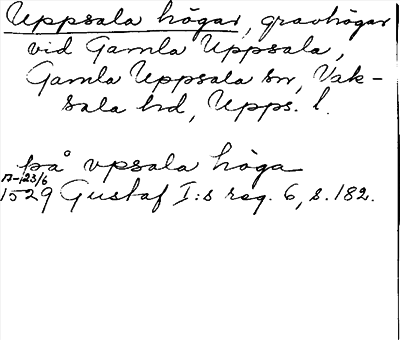 Uppsala högar, gravhögar
vid Gamla Uppsala,
Gamla Uppsala sn, Vak-
sala hd, Upps. l.
på vpsala höga
17-23/6
1529 Gustaf I:s reg. 6, s. 182.